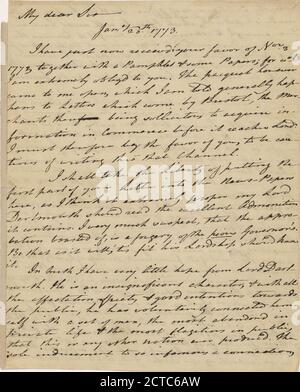 My dear Sir
Jany 25th 1773.
I have just now received your favor of Nov. 3
1773, together with a Pamphlet & some Papers; for wh. I
am extremely obliged to you. The pacquet however
came to me open, which I am told generally hap-
pens to letters which come by Bristol, the Mer-
chants there being sollicitous to acquire in-
formation in Commerce before it reaches Lond.
I must therefore beg the favor of you, to be cau-
tious of writing by that Channel.
I shall take the liberty of putting the
first part of your letter into the News Papers
here, as I think it extremely proper my Lord
Dartmouth should read the decent Admonition
it contains. I very much suspect that the appro-
bation boasted of, is a forgery of the Govenor's.
Be that as it will, tis fit his Lordship should hear
it.
In truth I have very little hope from Lord Dart-
mouth. He is an insignificant character, & with all
the affectation of piety & good intention towards
the public, he has voluntarily connected him-
self with a set of men, the most abandoned in
private life & the most flagitious in public,
that this or any other nation ever produced. The
sole inducement to so infamous a connection,
alamy
Image ID: 2CTC6AW
www.alamy.com